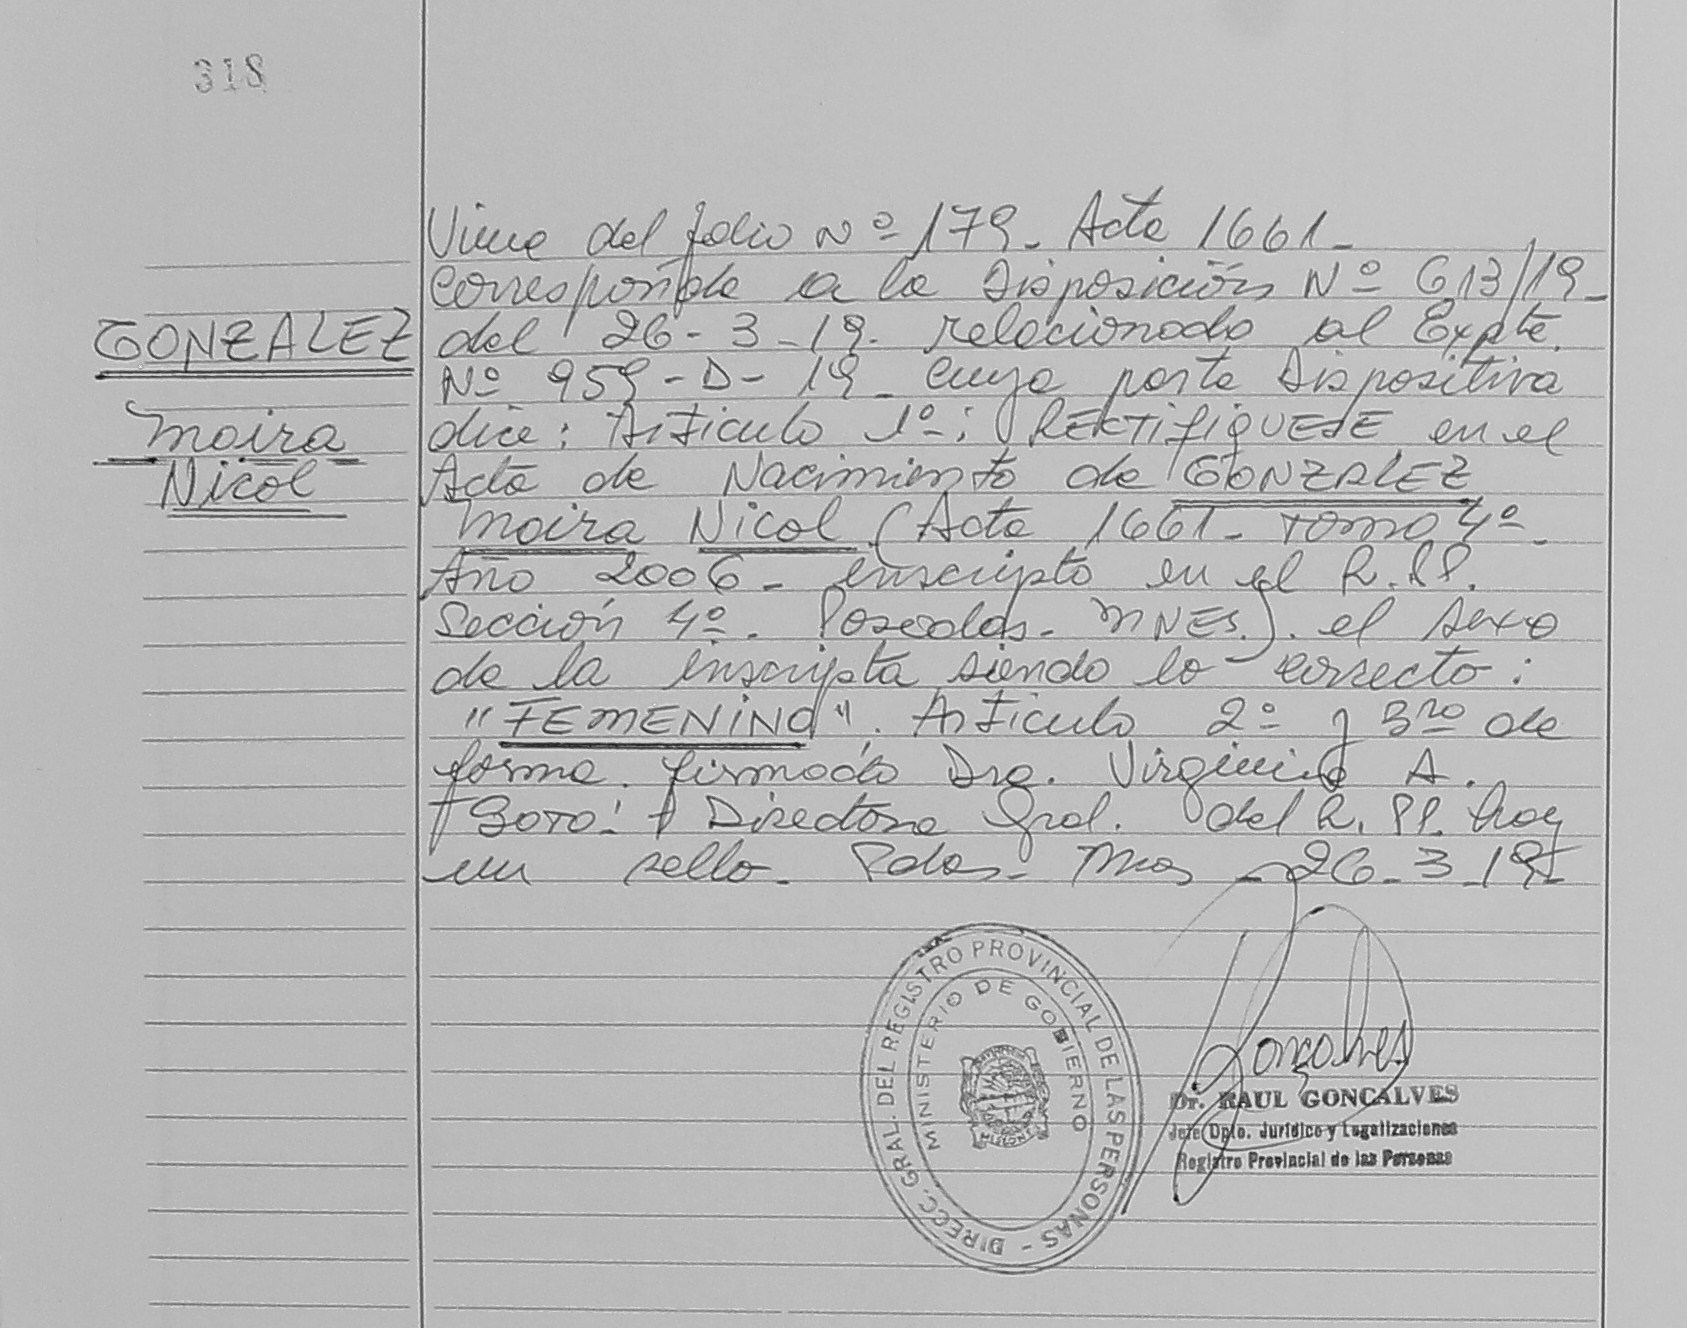 318
GONZALEZ
Moira
Nicol
Viene del folio Nº 179_ Acta 1661_
Corresponde a la Disposición Nº 613/19_
del 26-3-19. relacionado al Expte.
Nº 959-D-19_ cuya parte Dispositiva
dice: Articulo 1º: RECTIFIQUESE en el
Acta de Nacimiento de GONZALEZ
Moira Nicol (Acta 1661_ Tomo 4º_
Año 2006_ inscripta en el R.PP.
Sección 4º. Posadas_ MNES.). el sexo
de la inscripta siendo lo correcto:
"FEMENINO". Articulo 2º y 3ro de
forma. firmado Dra. Virginia A.
Directora Gral. del R.PP. hay
un sello_ Pdas_ Mnes_ 26_3_19_
DIRECC. GRAL. DEL REGISTRO PROVINCIAL DE LAS PERSONAS -
MINISTERIO DE GOBIERNO
Goncalves
Dr. RAUL GONCALVES
Jefe Dpto. Jurídico y Legalizaciones
Registro Provincial de las Personas